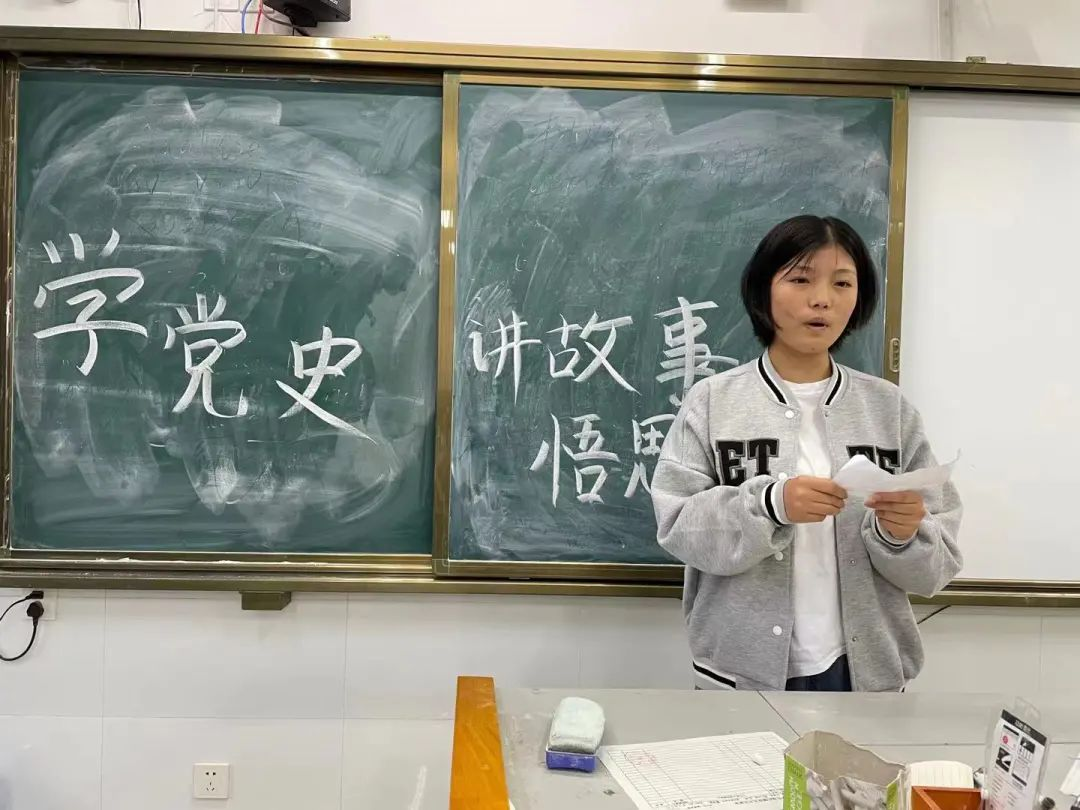 学党史
讲故事
悟思
ET